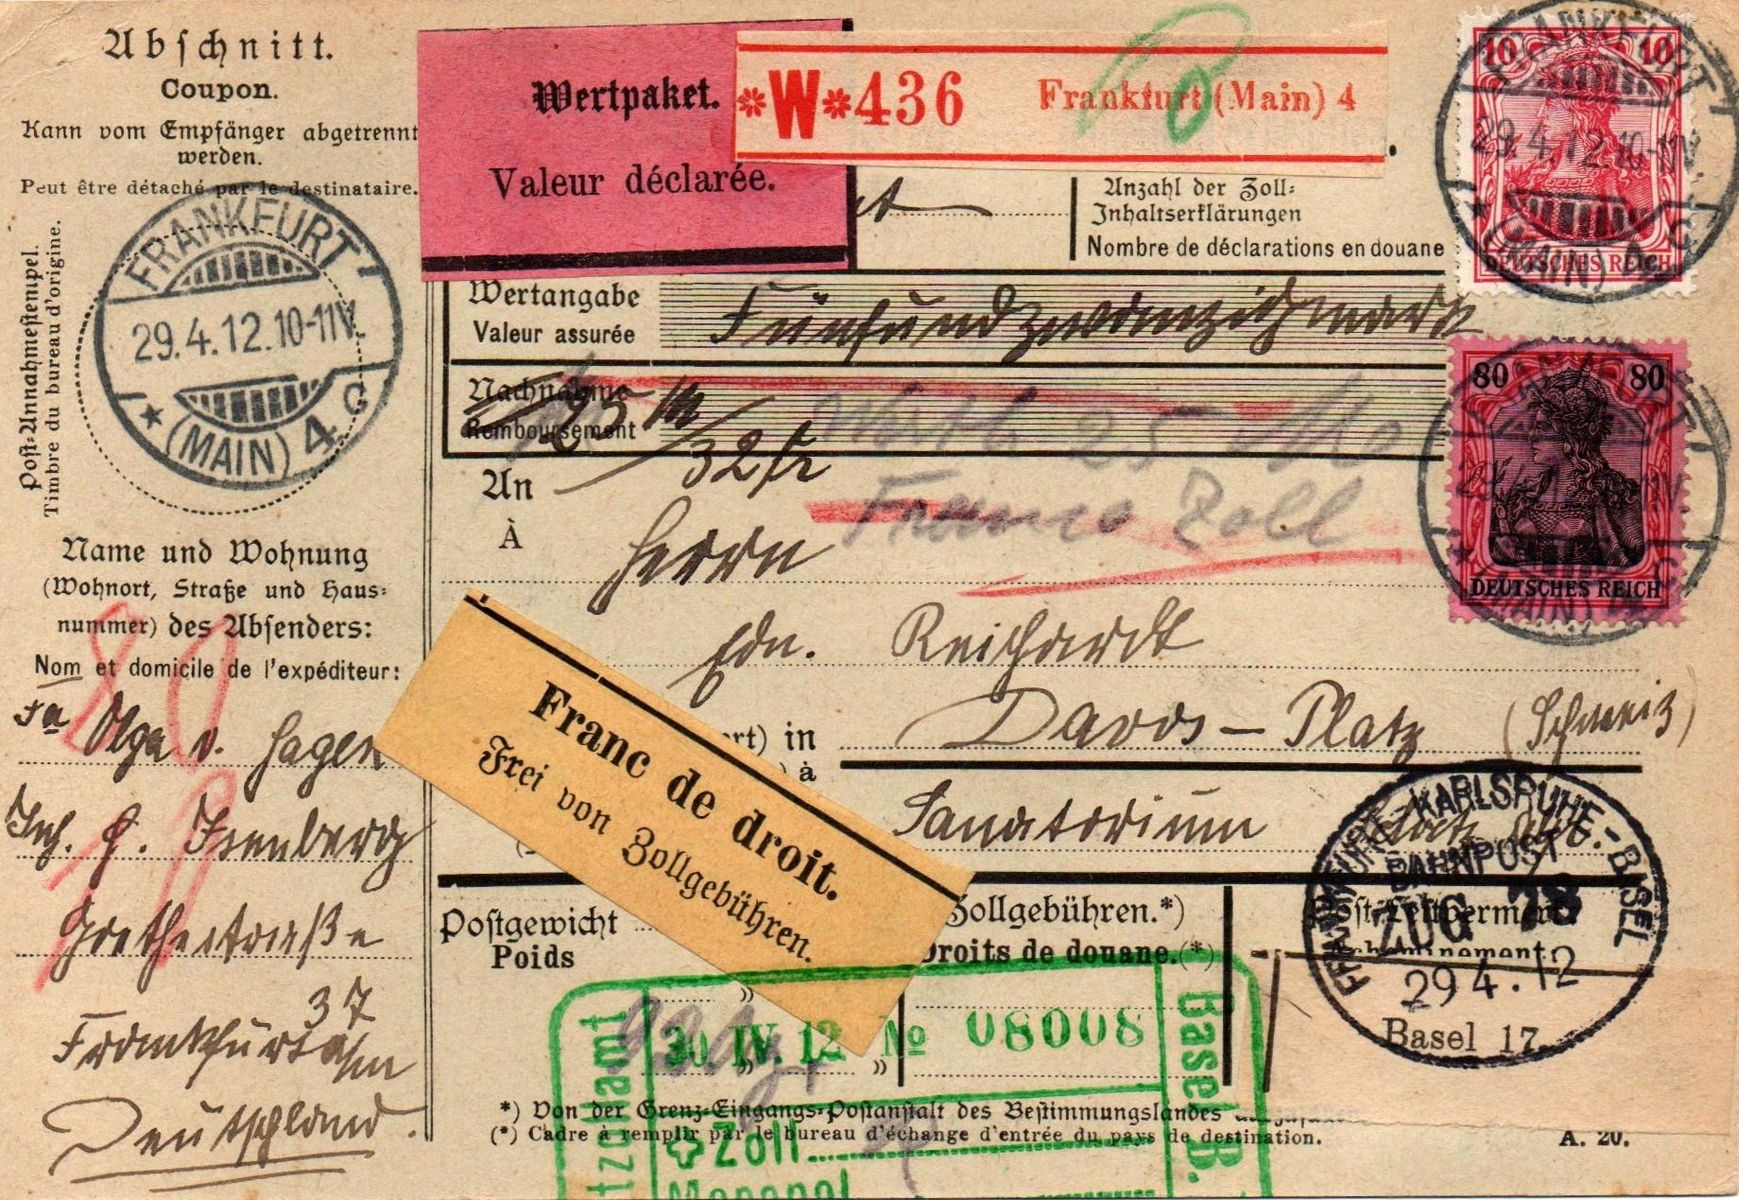 Abschnitt.
Coupon.
Kann vom Empfänger abgetrennt
werden.
Peut être détaché par le destinataire.
Post-Annahmestempel.
Timbre du bureau d'origine.
FRANKFURT
29.4.12.10-11V.
(MAIN) 4 C
Name und Wohnung
(Wohnort, Straße und Haus-
nummer) des Absenders:
Nom et domicile de l'expéditeur:
80
Fa Olga v. Hagen
Inh. H. Isenberg
Goethestraße
37
Frankfurt a/m
Deutschland.
Wertpaket.
Valeur déclarée.
W 436 Frankfurt (Main) 4
Anzahl der Zoll-
Inhaltserklärungen
Nombre de déclarations en douane
Wertangabe
Valeur assurée
Fünfundzwanzigmark
Nachnahme
Remboursement
25 M
32 fr
Werth 25
Franco Zoll
An
À
Herrn
Edn. Reichardt
in
à
Davos-Platz (Schweiz)
Sanatorium
Franc de droit.
Frei von Zollgebühren.
Postgewicht
Poids
Zollgebühren.*)
Droits de douane.(*)
10 10
FRANKFURT
29.4.12.10-11V.
(MAIN) 4 C
DEUTSCHES REICH
80 80
DEUTSCHES REICH
(MAIN) 4 C
KARLSRUHE-BASEL
BAHNPOST
ZUG 78
29 4.12
Basel 17
30 IV. 12 № 08008
Basel B.
Zoll
Monopol
*) Von der Grenz-Eingangs-Postanstalt des Bestimmungslandes
(*) Cadre à remplir par le bureau d'échange d'entrée du pays de destination.
A. 20.